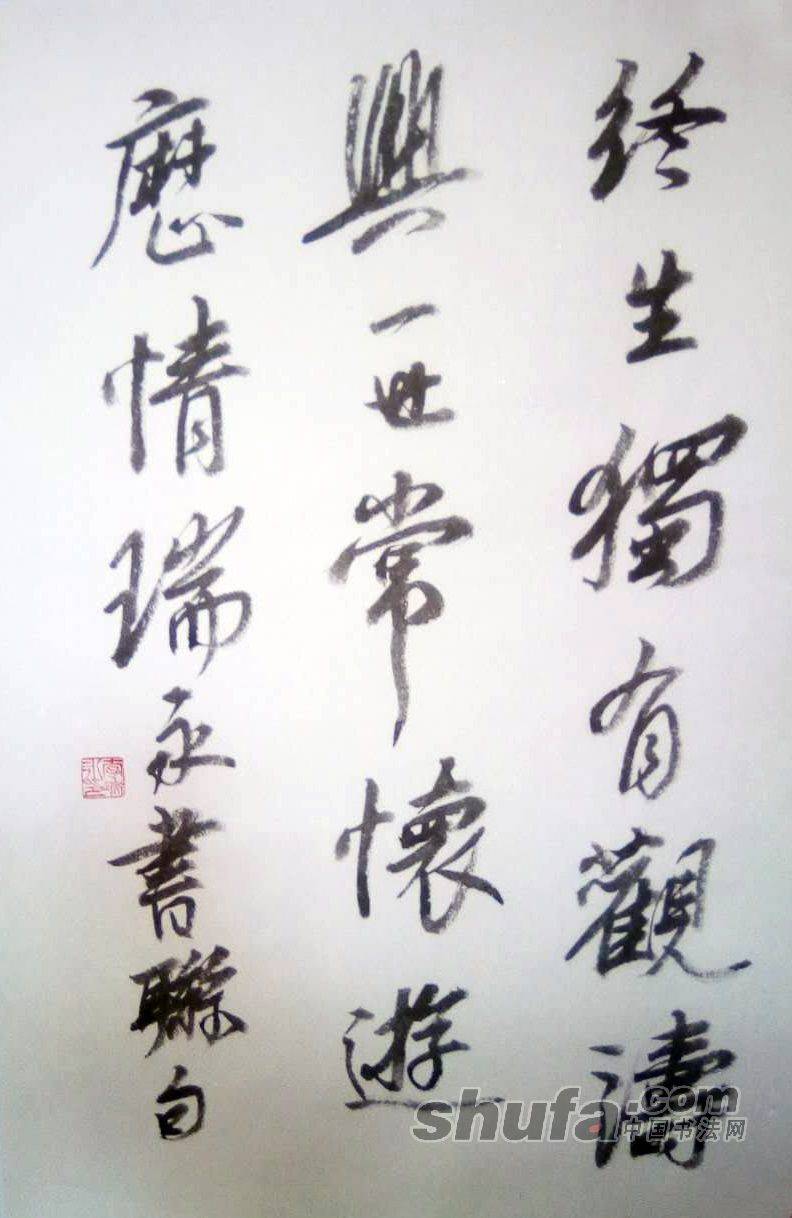 終生獨有觀濤
興一世常懷遊
歷情瑞永書聯句
shufa.com
中国书法网